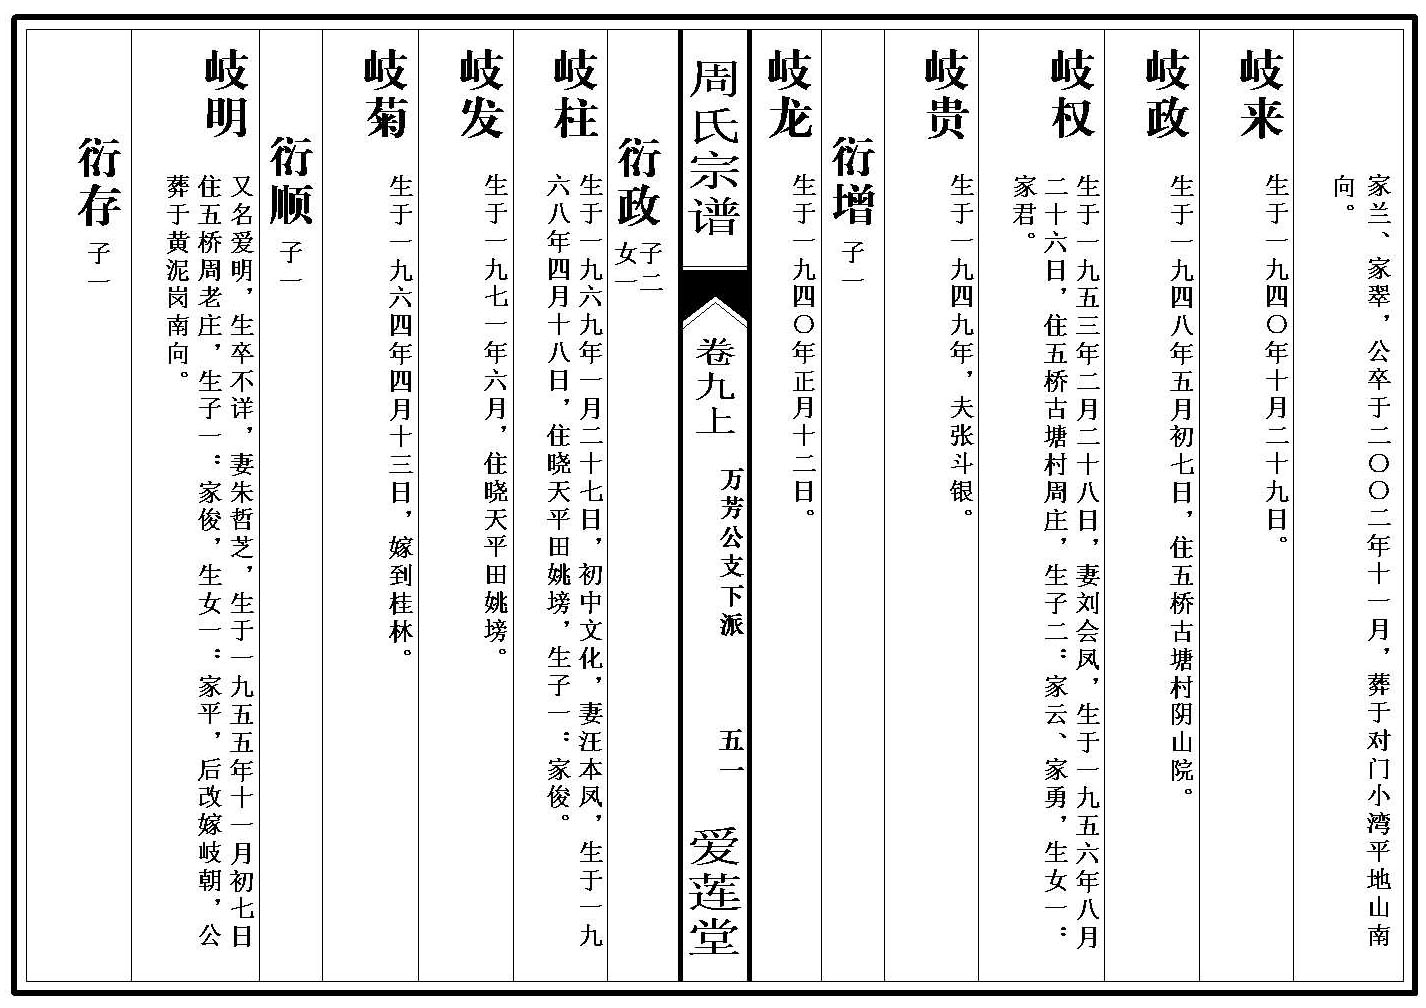 家兰、家翠，公卒于二〇〇二年十一月，葬于对门小湾平地山南
向。
岐来
生于一九四〇年十月二十九日。
岐政
生于一九四八年五月初七日，住五桥古塘村阴山院。
岐权
生于一九五三年二月二十八日，妻刘会凤，生于一九五六年八月
二十六日，住五桥古塘村周庄，生子二：家云、家勇，生女一：
家君。
岐贵
生于一九四九年，夫张斗银。
衍增
子一
岐龙
生于一九四〇年正月十二日。
周氏宗谱
卷九上
万芳公支下派
五一
爱莲堂
衍政
子二
女一
岐柱
生于一九六九年一月二十七日，初中文化，妻汪本凤，生于一九
六八年四月十八日，住晓天平田姚塝，生子一：家俊。
岐发
生于一九七一年六月，住晓天平田姚塝。
岐菊
生于一九六四年四月十三日，嫁到桂林。
衍顺
子一
岐明
又名爱明，生卒不详，妻朱哲芝，生于一九五五年十一月初七日
住五桥周老庄，生子一：家俊，生女一：家平，后改嫁岐朝，公
葬于黄泥岗南向。
衍存
子一